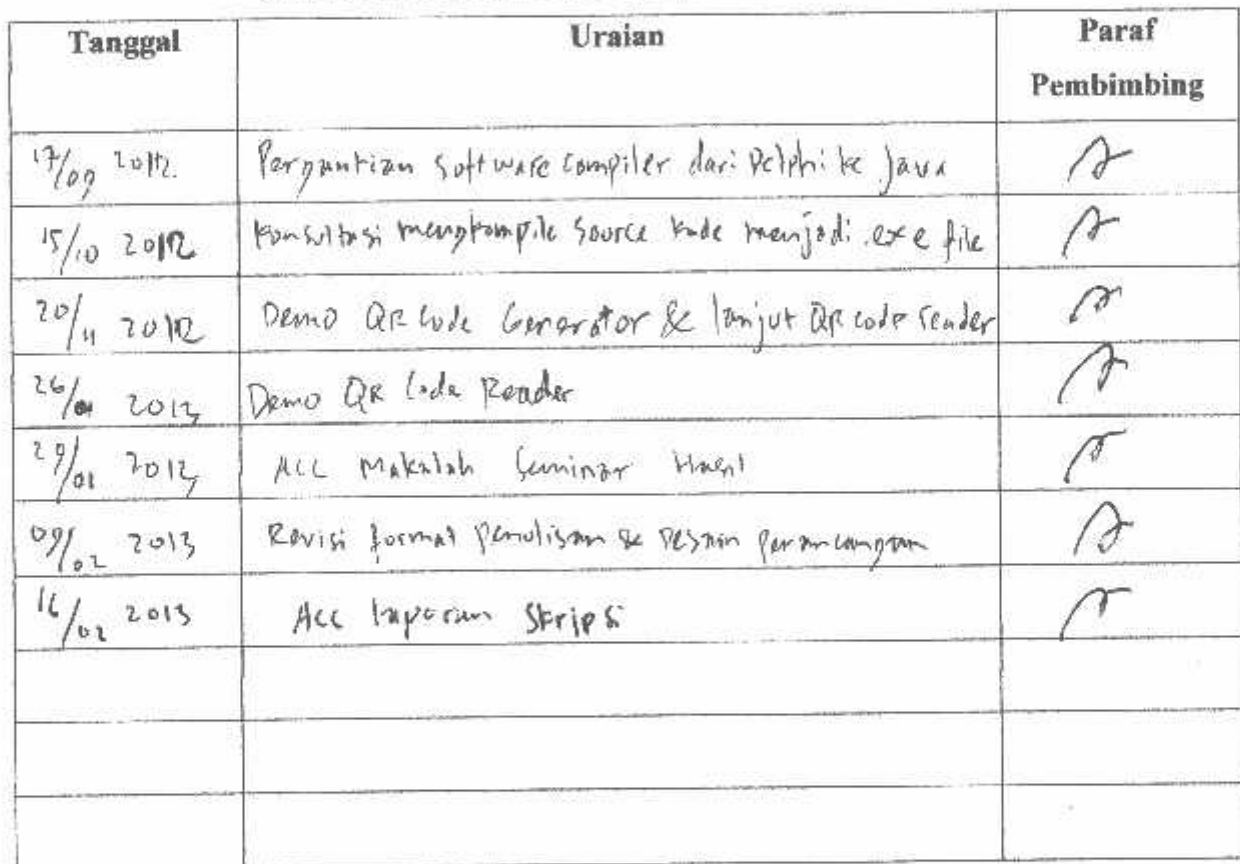 Tanggal Uraian Paraf
Pembimbing
17/09 2012 Pergantian Software compiler dari Delphi ke Java
15/10 2012 Konsultasi mengkompile Source kode menjadi .exe file
20/11 2012 Demo QR Code Generator & lanjut QR code reader
26/01 2013 Demo QR Code Reader
29/01 2013 ACC Makalah Seminar Hasil
09/02 2013 Revisi format penulisan & Desain perancangan
16/02 2013 Acc laporan Skripsi